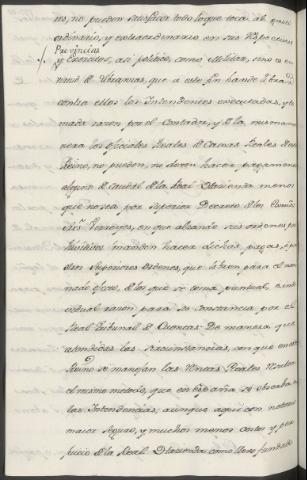 no pueden satisfacer todo lo que toca al
ordinario, y extraordinario en sus
Provincias
y Exercitos, asi politico, como Militar, sino en
virtud de Libranzas, que a este fin han de librar
contra ellos los Intendentes executadas, y to
mada razon por el Contador, y de la misma
para los oficiales Reales de Caxas Reales de este
Reino, no pueden, no deven hacer pagamento
alguno de Caudal de la Real Hazienda menos
que no sea por Superior Decreto de los
Virreyes, en que
mandan hacer dichas pagas, o por
Superiores ordenes, que libren para el
nado efecto, de los que se toma puntual, e indi
vidual razon para su constancia por el
Real Tribunal de Cuentas. De manera que
atendidas las circunstancias, con que en este
Reino se manejan las Rentas Reales
el mismo metodo, que en España se observa
las Intendencias, aunque aqui con notoria
maior seguro, y muchos menos costos y per
juicio de la Real Hazienda como llevo fundado